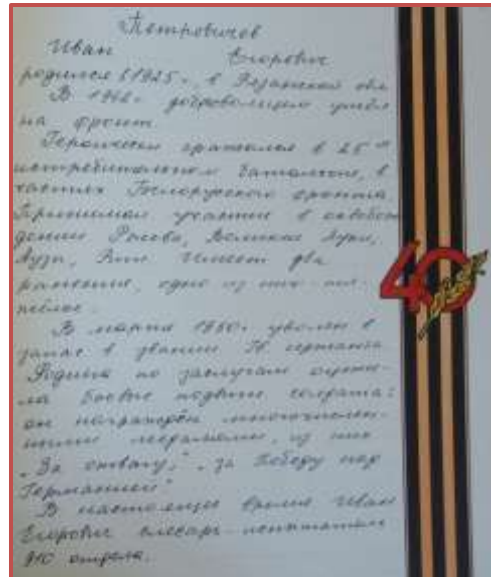 Петровичев
Иван Егорович
родился в 1925 г. в Рязанской обл
В 1942 г. добровольцем ушёл
на фронт.
Героически сражался в 25ом
истребительном батальоне, в
частях Белорусского фронта.
Принимал участие в освобож
дении Ржева, Великие Луки,
Имеет два
ранения, одно из них тя
желое.
В марте 1950 г. уволен в
запас в звании сержанта
Родина по заслугам оцени-
ла боевые подвиги солдата:
он награждён многочислен-
ными медалями, из них
"За отвагу", "За Победу над
Германией"
В настоящее время Иван
Егорович слесарь-испытатель
910 отдела.
40